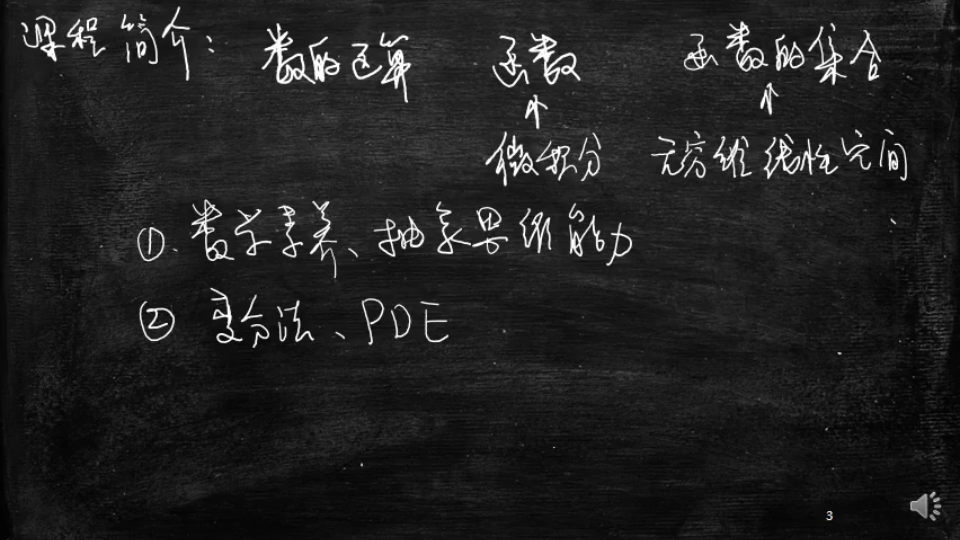 课程简介： 数的运算 函数 函数的集合
↑ ↑
微积分 无穷维线性空间
①. 数学素养、抽象思维能力
② 变分法、PDE
3